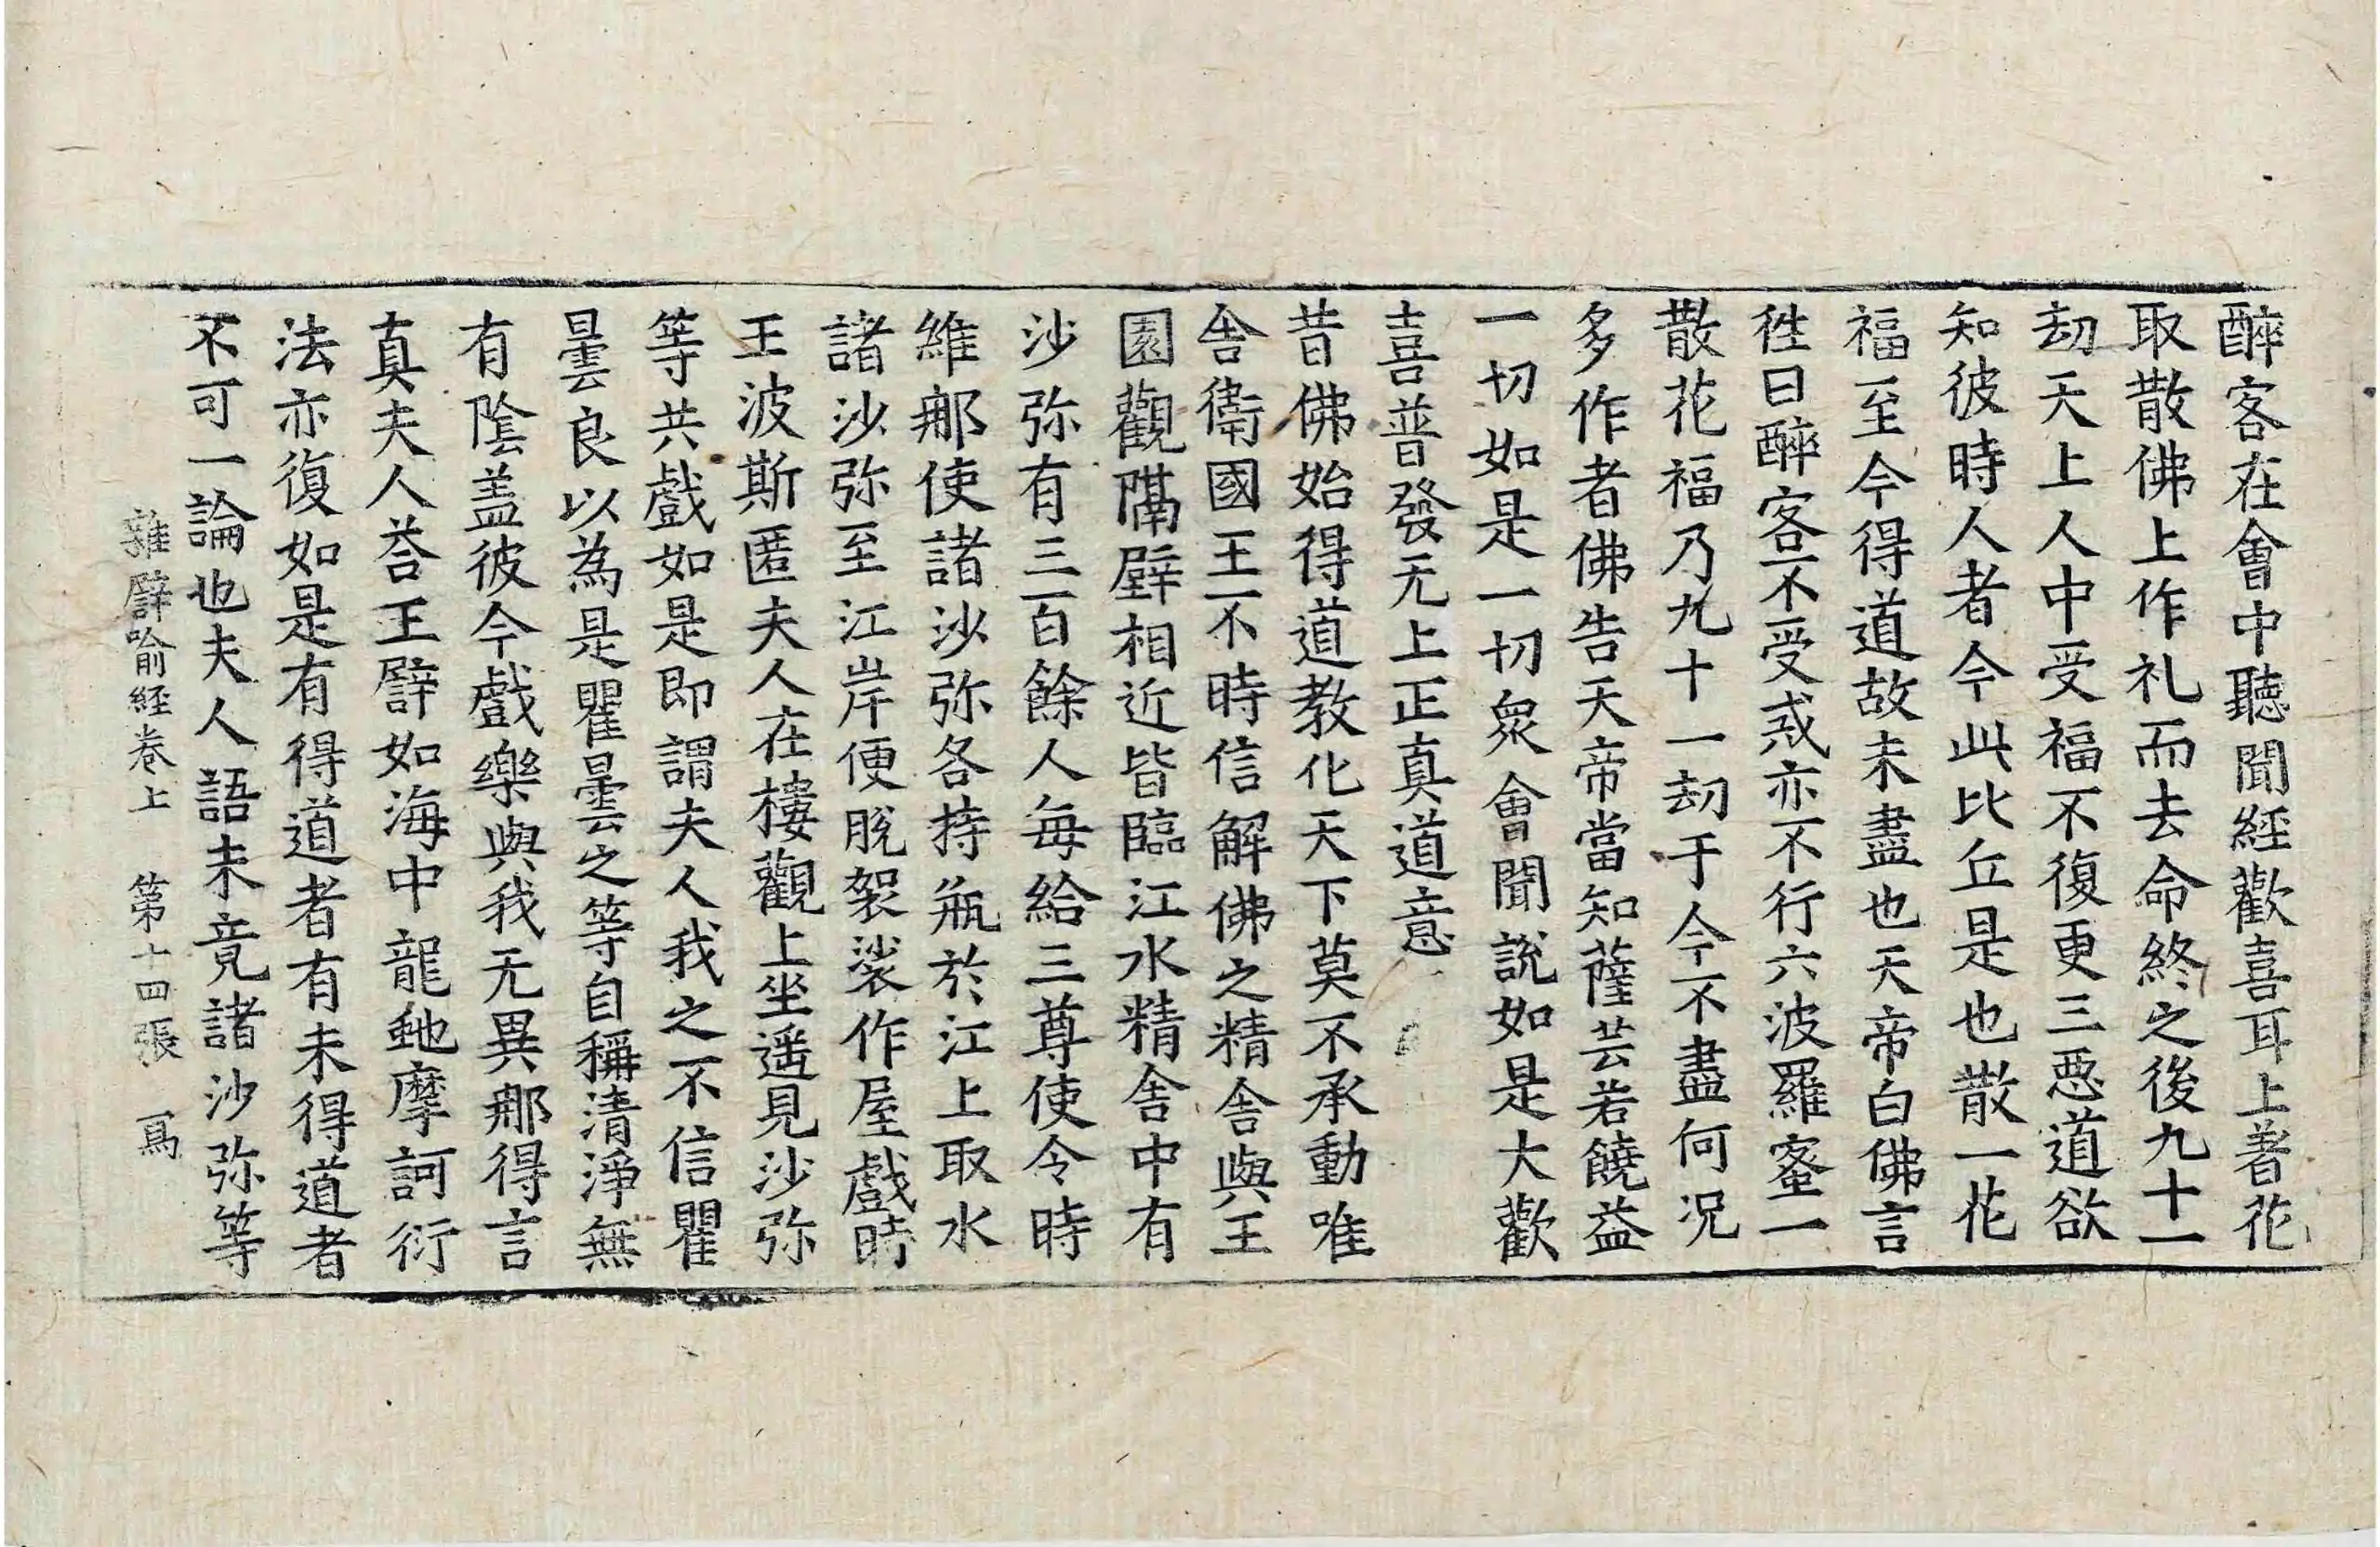 醉客在會中聽聞經歡喜耳上著花
取散佛上作礼而去命終之後九十一
劫天上人中受福不復更三惡道欲
知彼時人者今此比丘是也散一花
福至今得道故未盡也天帝白佛言
往日醉客不受戒亦不行六波羅蜜一
散花福乃九十一劫于今不盡何況
多作者佛告天帝當知薩芸若饒益
一切如是一切衆會聞說如是大歡
喜普發无上正真道意
昔佛始得道教化天下莫不承動唯
舍衛國王不時信解佛之精舍與王
園觀隣壁相近皆臨江水精舍中有
沙弥有三百餘人每給三尊使令時
維那使諸沙弥各持瓶於江上取水
諸沙弥至江岸便脫袈裟作屋戲時
王波斯匿夫人在樓觀上坐遥見沙弥
等共戲如是即謂夫人我之不信瞿
曇良以為是瞿曇之等自稱清淨無
有陰盖彼今戲樂與我无異那得言
真夫人荅王譬如海中龍虵摩訶衍
法亦復如是有得道者有未得道者
不可一論也夫人語未竟諸沙弥等
雜譬喻経卷上　第十四張　寫